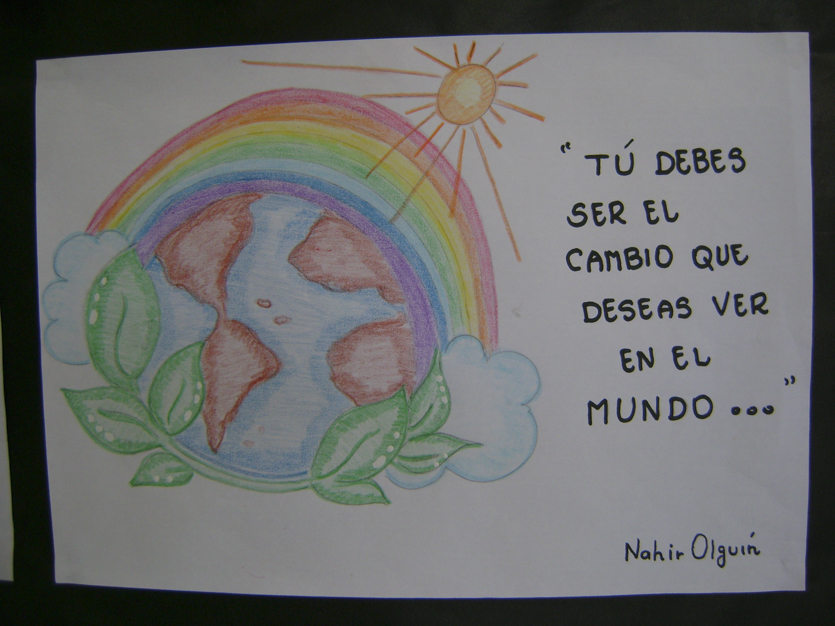 “TÚ DEBES
SER EL
CAMBIO QUE
DESEAS VER
EN EL
MUNDO...”
Nahir Olguín